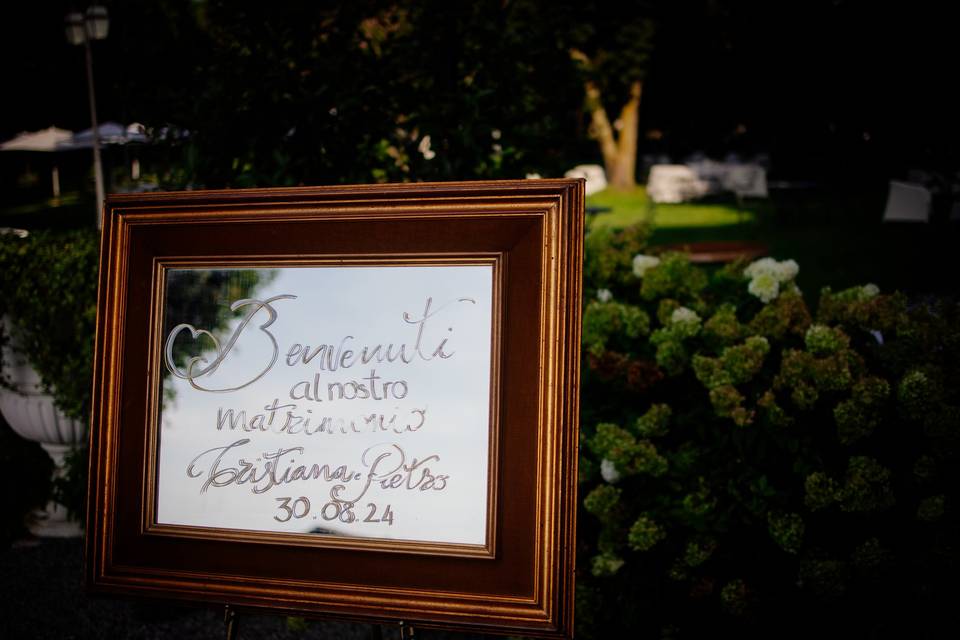 Benvenuti
al nostro
matrimonio
Cristiana e Pietro
30.08.24